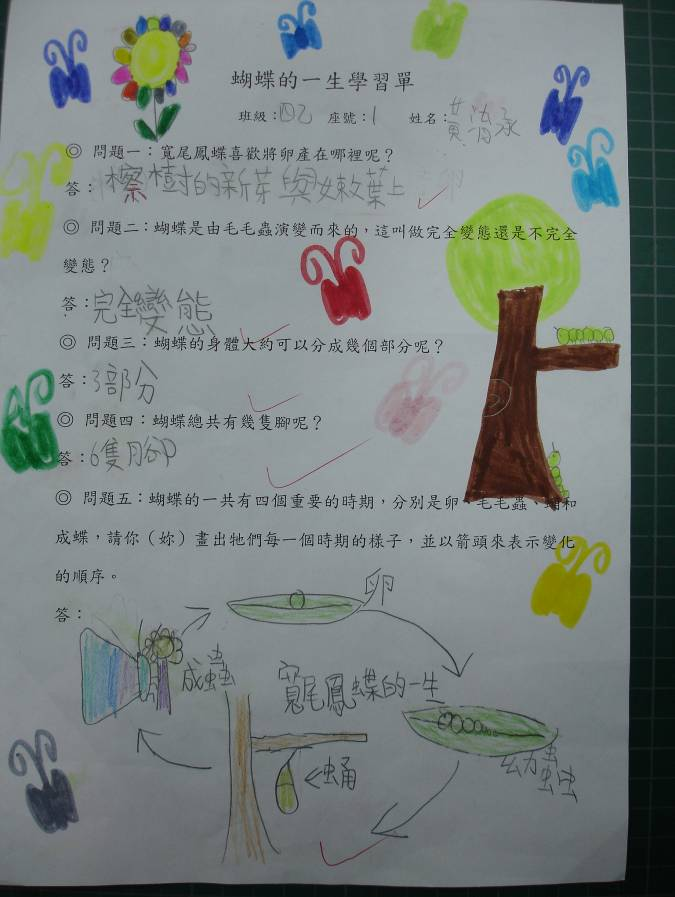 蝴蝶的一生學習單
班級：四乙 座號：1 姓名：黃湝承
◎ 問題一：寬尾鳳蝶喜歡將卵產在哪裡呢？
答：檫樹的新芽與嫩葉上
◎ 問題二：蝴蝶是由毛毛蟲演變而來的，這叫做完全變態還是不完全
變態？
答：完全變態
◎ 問題三：蝴蝶的身體大約可以分成幾個部分呢？
答：3部分
◎ 問題四：蝴蝶總共有幾隻腳呢？
答：6隻腳
◎ 問題五：蝴蝶的一共有四個重要的時期，分別是卵、毛毛蟲、蛹和
成蝶，請你（妳）畫出牠們每一個時期的樣子，並以箭頭來表示變化
的順序。
答：
卵
成蟲
寬尾鳳蝶的一生
幼蟲
蛹